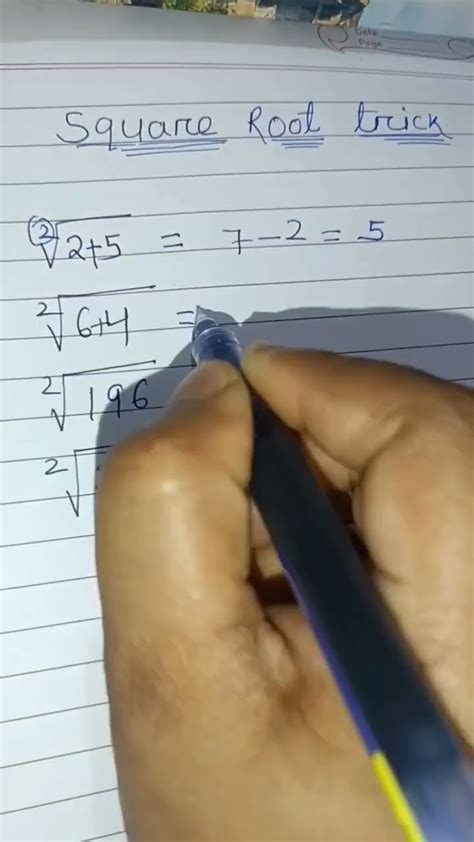 Date
Page
Square Root trick
²√2+5 = 7-2 = 5
²√6+4 =
²√196
²√